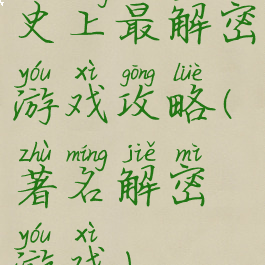 史上最解密
yóu xì gōng lüè
游戏攻略(
zhù míng jiě mì
著名解密
yóu xì
游戏)